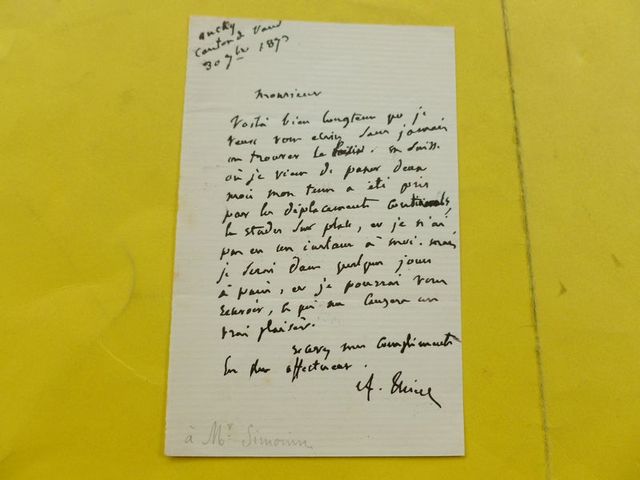 ouchy
canton de Vaud
30 7bre 187
Monsieur
Voilà bien longtems que je
veux vous ecrire sans jamais
en trouver le En Suisse
où je viens de passer deux
mois mon tems a été pris
par les déplacements continuels,
les etudes sur place, et je n'ai
pas eu un instant à moi. mais
je serai dans quelques jours
à paris, et je pourrai vous
recevoir, ce qui me causera un
vrai plaisir.
recevez mes compliments
les plus affectueux.
A.
à Mr. Simonin